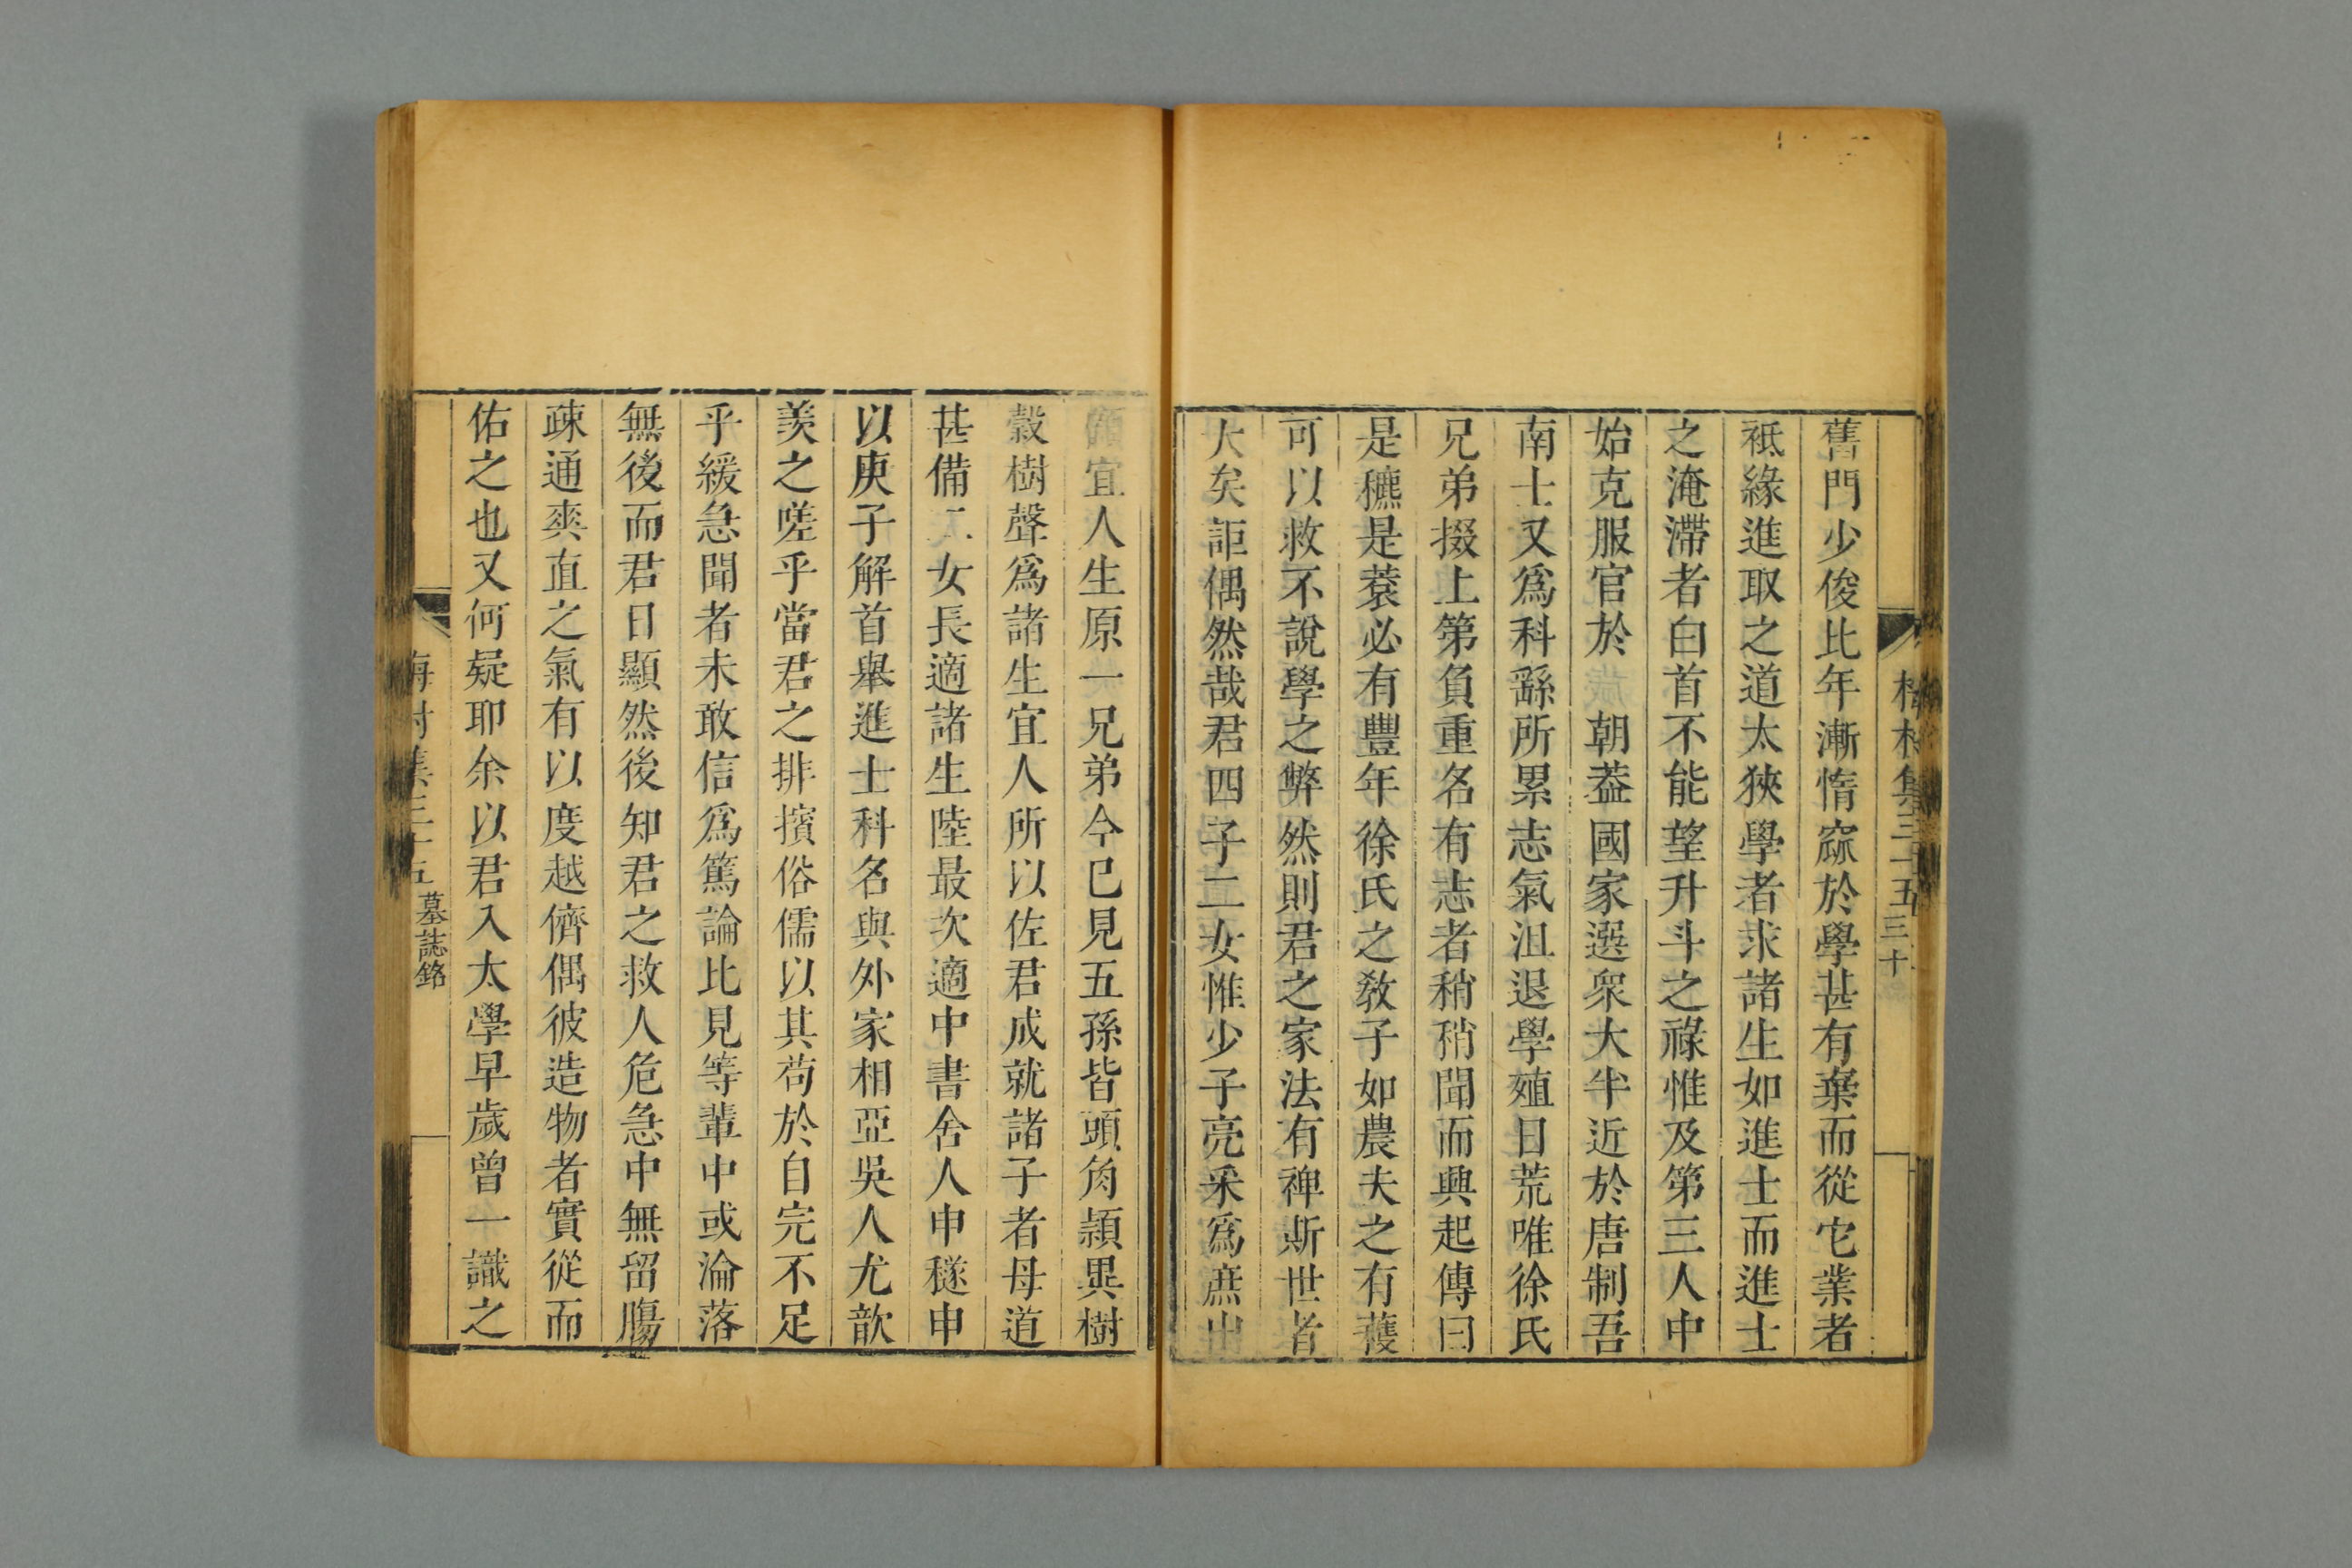 舊門少俊比年漸惰窳於學甚有棄而從它業者
祗緣進取之道太狹學者求諸生如進士而進士
之淹滯者白首不能望升斗之祿惟及第三人中
始克服官於 朝葢國家選衆大半近於唐制吾
南士又爲科繇所累志氣沮退學殖日荒唯徐氏
兄弟掇上第負重名有志者稍稍聞而興起傳曰
是穮是蔉必有豐年徐氏之敎子如農夫之有蓘
可以救不說學之弊然則君之家法有裨斯世者
大矣詎偶然哉君四子二女惟少子亮采爲庶出
宜人生原一兄弟今已見五孫皆頭角穎異樹
穀樹聲爲諸生宜人所以佐君成就諸子者母道
甚備二女長適諸生陸最次適中書舍人申穟申
以庚子解首舉進士科名與外家相亞吳人尤歆
羨之嗟乎當君之排擯俗儒以其苟於自完不足
乎緩急聞者未敢信爲篤論比見等輩中或淪落
無後而君日顯然後知君之救人危急中無留膓
疎通爽直之氣有以度越儕偶彼造物者實從而
佑之也又何疑耶余以君入太學早歲曾一識之
梅村集三十五 墓誌銘